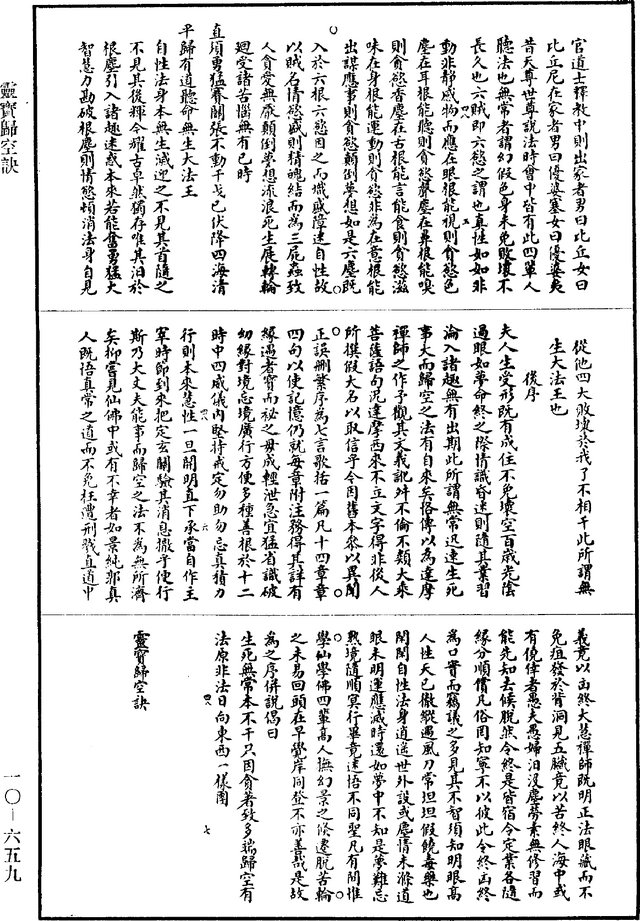 官道士釋教中則出家者男曰比丘女曰
比丘尼在家者男曰優婆塞女曰優婆夷
昔天尊世尊說法時會中皆有此四輩人
聽法也無常者謂幻假色身未免敗壞不
長久也六賊即六慾之謂也真性如如非
動非靜感物而應在眼根能視則貪慾色
塵在耳根能聽則貪慾聲塵在鼻根能嗅
則貪慾香塵在舌根能言能食則貪慾滋
味在身根能運動則貪慾非為在意根能
出謀應事則貪慾顛倒夢想如是六塵既
入於六根六慾因之而熾盛障迷自性故
以賊名情慾盛則精魄結而為三屍蟲致
人貪愛無厭顛倒夢想流浪死生展轉輪
迴受諸苦惱無有已時
直須勇猛賽關張不動干戈已伏降四海清
平歸有道聽命無生大法王
自性法身本無生滅迎之不見其首隨之
不見其後輝今耀古卓然獨存唯其汩於
根塵引入諸趣迷惑本來若能奮勇猛大
智慧力勘破根塵則情慾頓消法身自見
從他四大敗壞於我了不相干此所謂無
生大法王也
後序
夫人生受形既有成住不免壞空百歲光陰
過眼如夢命終之際情識昏迷則隨其業習
淪入諸趣無有出期此所謂無常迅速生死
事大而歸空之法有自來矣俗傳以為達摩
禪師之作予觀其文義訛舛不倫不類大乘
菩薩語句況達摩西來不立文字得非後人
所撰假大名以取信乎今因舊本參以異聞
正誤刪繁序為七言歌括一篇凡十四章章
四句以使記憶仍就每章附注務得其詳有
緣遇者寶而祕之毋成輕泄急宜猛省識破
幻緣對境忘境廣行方便多種善根於十二
時中四威儀內堅持戒定勿助勿忘真積力
行則本來慧性一旦開明直下承當自作主
宰時節到來把定玄關驗其消息撒手便行
斯乃大丈夫能事而歸空之法不為無所濟
矣抑嘗見仙佛中或有不幸者如景純郭真
人既悟真常之道而不免枉遭刑戮直道中
義竟以凶終大慧禪師既明正法眼藏而不
免疽發於背洞見五臟竟以苦終人海中或
有僥倖者愚夫愚婦汩沒塵勞素無修習而
能先知去候脫然令終是皆宿命定業各隨
緣分順償凡俗罔知寧不以彼此令終凶終
為口實而竊議之多見其不智須知明眼高
人性天已徹縱遇風刀常坦坦假饒毒藥也
閒閒自性法身逍遙世外設或塵情未滌道
眼未明運應滅時還如夢中不知是夢難忘
熟境隨順冥行畢竟迷悟不同聖凡有間惟
學仙學佛四輩高人撫幻景之倏遷脫苦輪
之未易回頭在早覺岸同登不亦善哉是故
為之序併說偈曰
生死無常本不干只因貪著致多端歸空有
法原非法日向東西一樣團
靈寶歸空訣
靈寶歸空訣
一〇—六五九